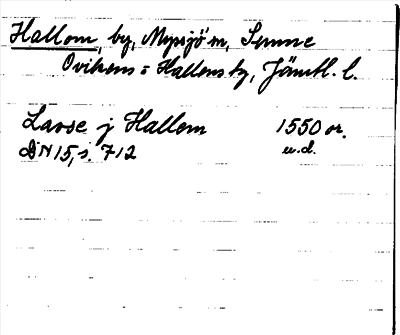 Hallom, by, Myssjö sn, Sunne
Ovikens o Hallens tg, Jämtl. l.
Lasse j Hallom 1550 or.
DN 15, s. 712 u.d.